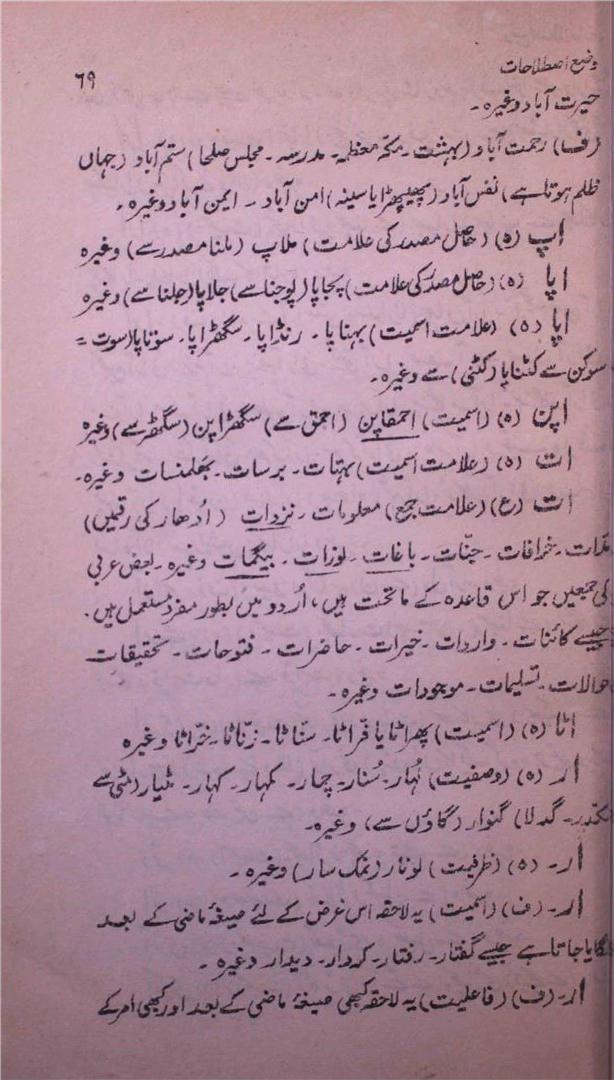 وضع اصطلاحات
٦٩
حیرت آباد وغیرہ۔
(ف) رحمت آباد (بہشت۔ مکہ معظمہ۔ مدرسہ۔ مجلس صلحا) ستم آباد (جہاں
ظلم ہوتا ہے) نفس آباد (پھیپھڑا یا سینہ) امن آباد ۔ ایمن آباد وغیرہ۔
اپ (ہ) (حاصل مصدر کی علامت) ملاپ (ملنا مصدر سے) وغیرہ
اپا (ہ) (حاصل مصدر کی علامت) پجاپا (پوجنا سے) جلاپا (جلنا سے) وغیرہ
اپا (ہ) (علامت اسمیت) بہناپا۔ رنڈاپا۔ سگھڑاپا۔ سوتاپا (سوت =
سوکن سے کٹناپا (کٹنی) سے وغیرہ۔
اپن (ہ) (اسمیت) احمقاپن (احمق سے) سگھڑاپن (سگھڑ سے) وغیرہ
ات (ہ) (علامت اسمیت) بہتات۔ برسات۔ بھلمنسات وغیرہ۔
ات (ع) (علامت جمع) معلومات۔ نزدات (ادھار کی رقمیں)
خرافات۔ جنّات۔ باغات۔ لوزات۔ بیگمات وغیرہ۔ بعض عربی
کی جمعیں جو اس قاعدہ کے ماتحت ہیں، اُردو میں بطور مفرد مستعمل ہیں۔
جیسے کائنات۔ واردات۔ خیرات۔ حاضرات۔ فتوحات۔ تحقیقات
حوالات۔ تسلیمات۔ موجودات وغیرہ۔
اٹا (ہ) (اسمیت) پھراٹا یا فرّاٹا۔ سنّاٹا۔ زنّاٹا۔ خرّاٹا وغیرہ
ار (ہ) (وصفیت) لُہار۔ سُنار۔ چمار۔ کمہار۔ کہار۔ مٹیار (مٹی سے
مکدر۔ گدلا) گنوار (گاؤں سے) وغیرہ۔
ار۔ (ہ) (ظرفیت) لونار (نمک سار) وغیرہ۔
ار۔ (ف) (اسمیت) یہ لاحقہ اس غرض کے لئے صیغۂ ماضی کے بعد
لگایا جاتا ہے جیسے گفتار۔ رفتار۔ کردار۔ دیدار وغیرہ۔
ار۔ (ف) (فاعلیت) یہ لاحقہ کبھی صیغۂ ماضی کے بعد اور کبھی امر کے